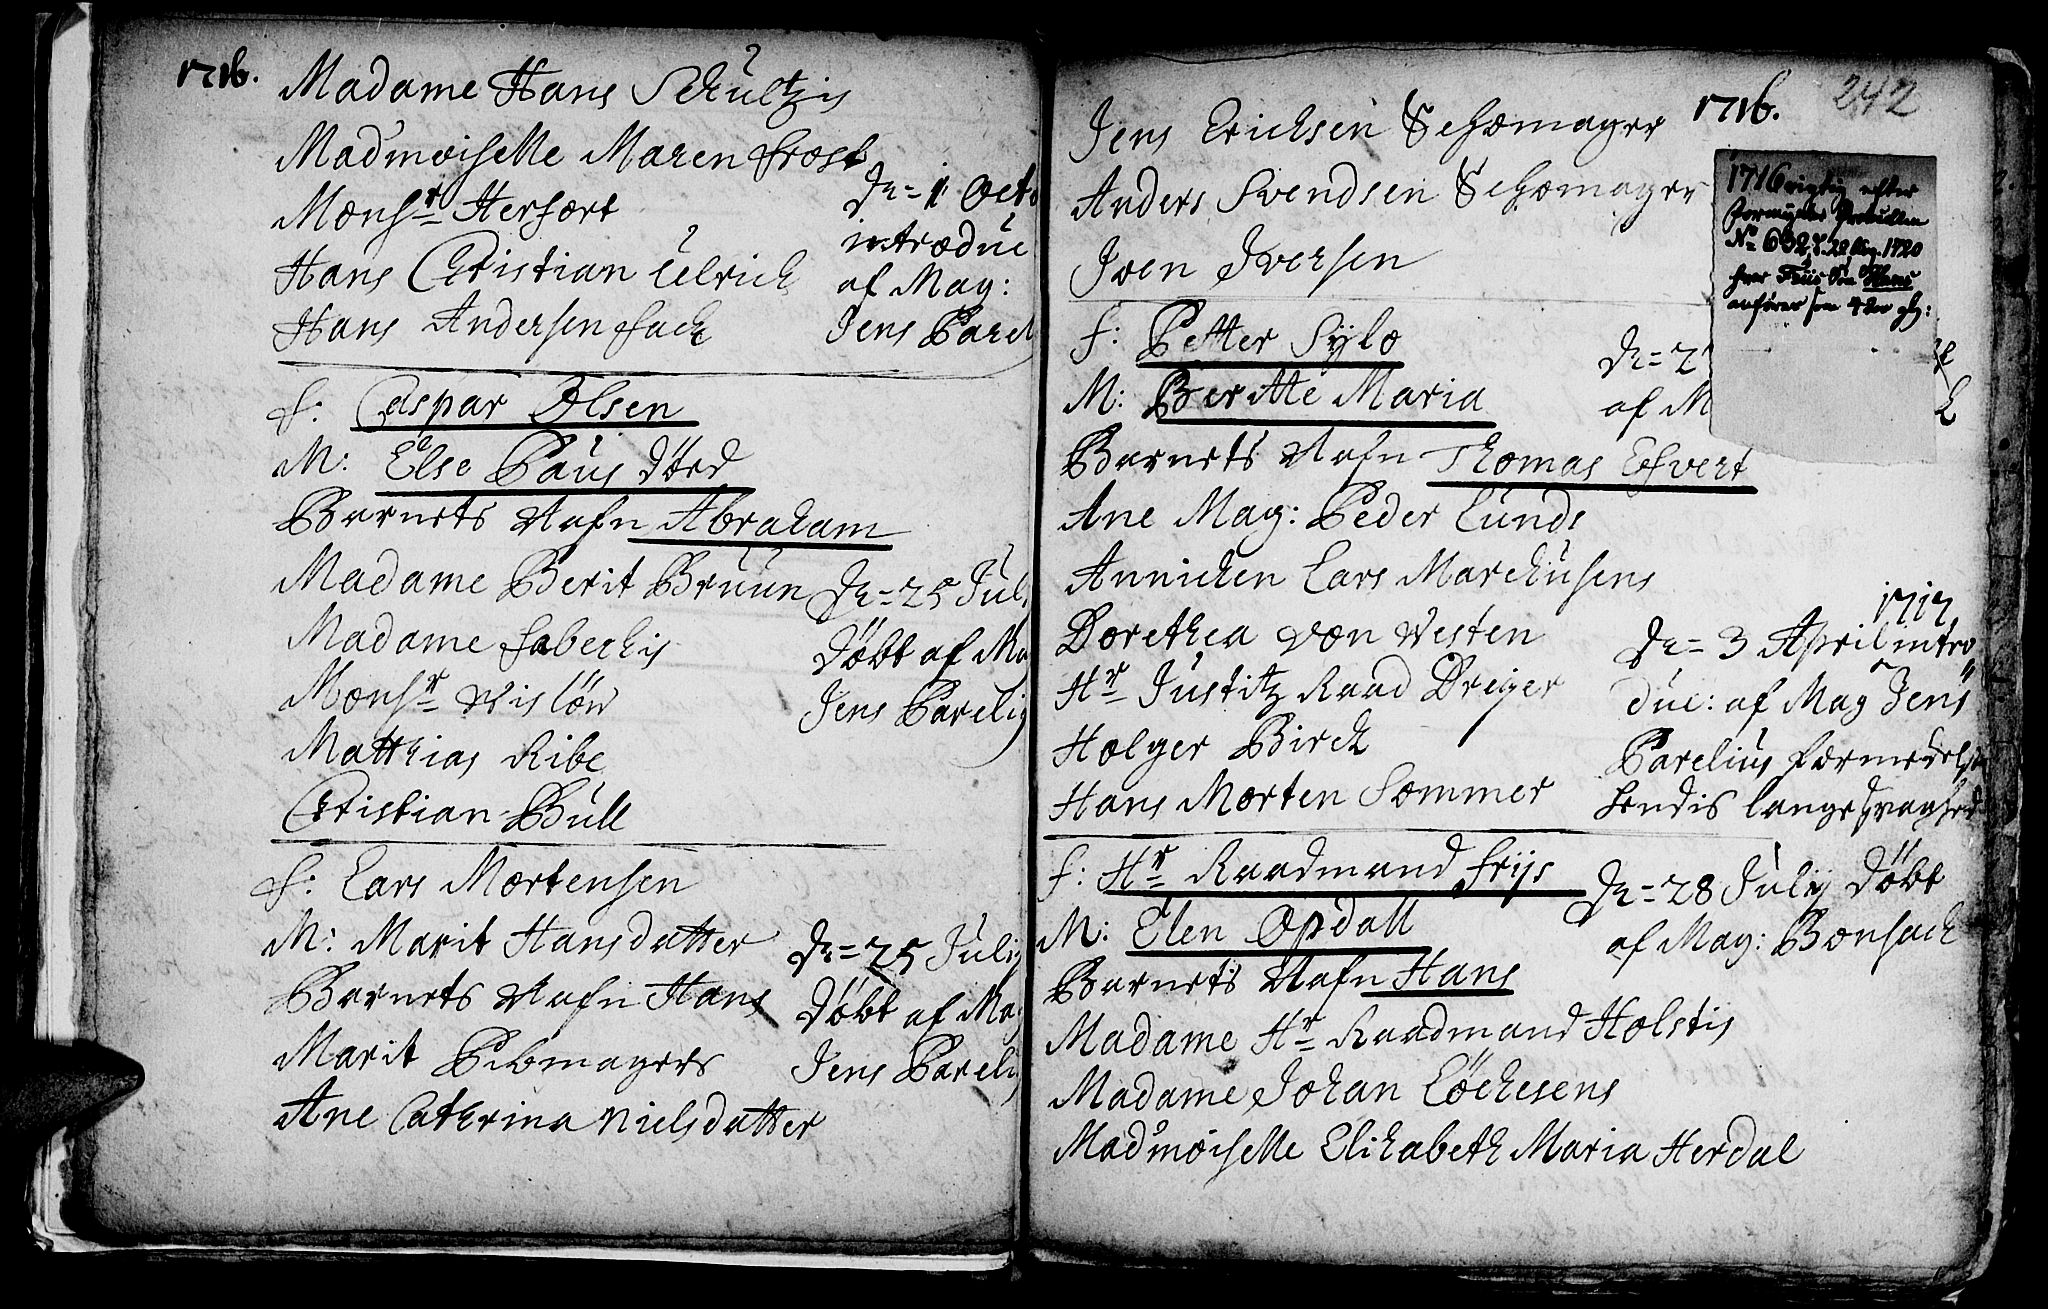 1716.
Madame Hans Schultzis
Madmoiselle Maren Frost
Monsr Herfort
Hans Christian Ulrich
Hans Andersen Fack
De= 1 Octo
introduc
af Mag:
Jens Parel
F: Caspar Olsen
M: Else Paus dörd
Barnets Nafn Abraham
Madame Berit Bruun
Madame Faberhis
Monsr Vislöw
Matthias Ribe
Christian Bull
De= 25 Juli
Döbt af Ma
Jens Parelig
F: Lars Mortensen
M: Marit Hansdatter
Barnets Nafn Hans
Marit Pibmagers
Ane Cathrina Nielsdatter
De= 25 Julij
Döbt af Mag
Jens Parelig
1716. 242
Jens Erichsen Schomager
Anders Svendsen Schomager
Iven Iversen
1716 rigtig efter
Formynder Protocollen
No 632, d. 20 Aug. 1720
hvor Friis Søn Hans
anføres som 4 Aar gl:
F: Petter Sylo
M: Beritte Maria
Barnets Nafn Thomas Efvert
Ane Mag: Peder Lunds
Annichen Lars Marchusens
Dorethea von Westen
Hr Justitz Raad Dreyer
Holger Birch
Hans Morten Sommer
De= 2
af M
1717
De= 3 April intro
duc: af Mag Jens
Parelius formedelst
hendis lange svaghed
F: Hr Raadmand Frijs
M: Elen Opdall
Barnets Nafn Hans
Madame Hr Raadmand Holstis
Madame Johan Löchesens
Madmoiselle Elisabeth Maria Herdal
De= 28 Julij Döbt
af Mag: Bonsach